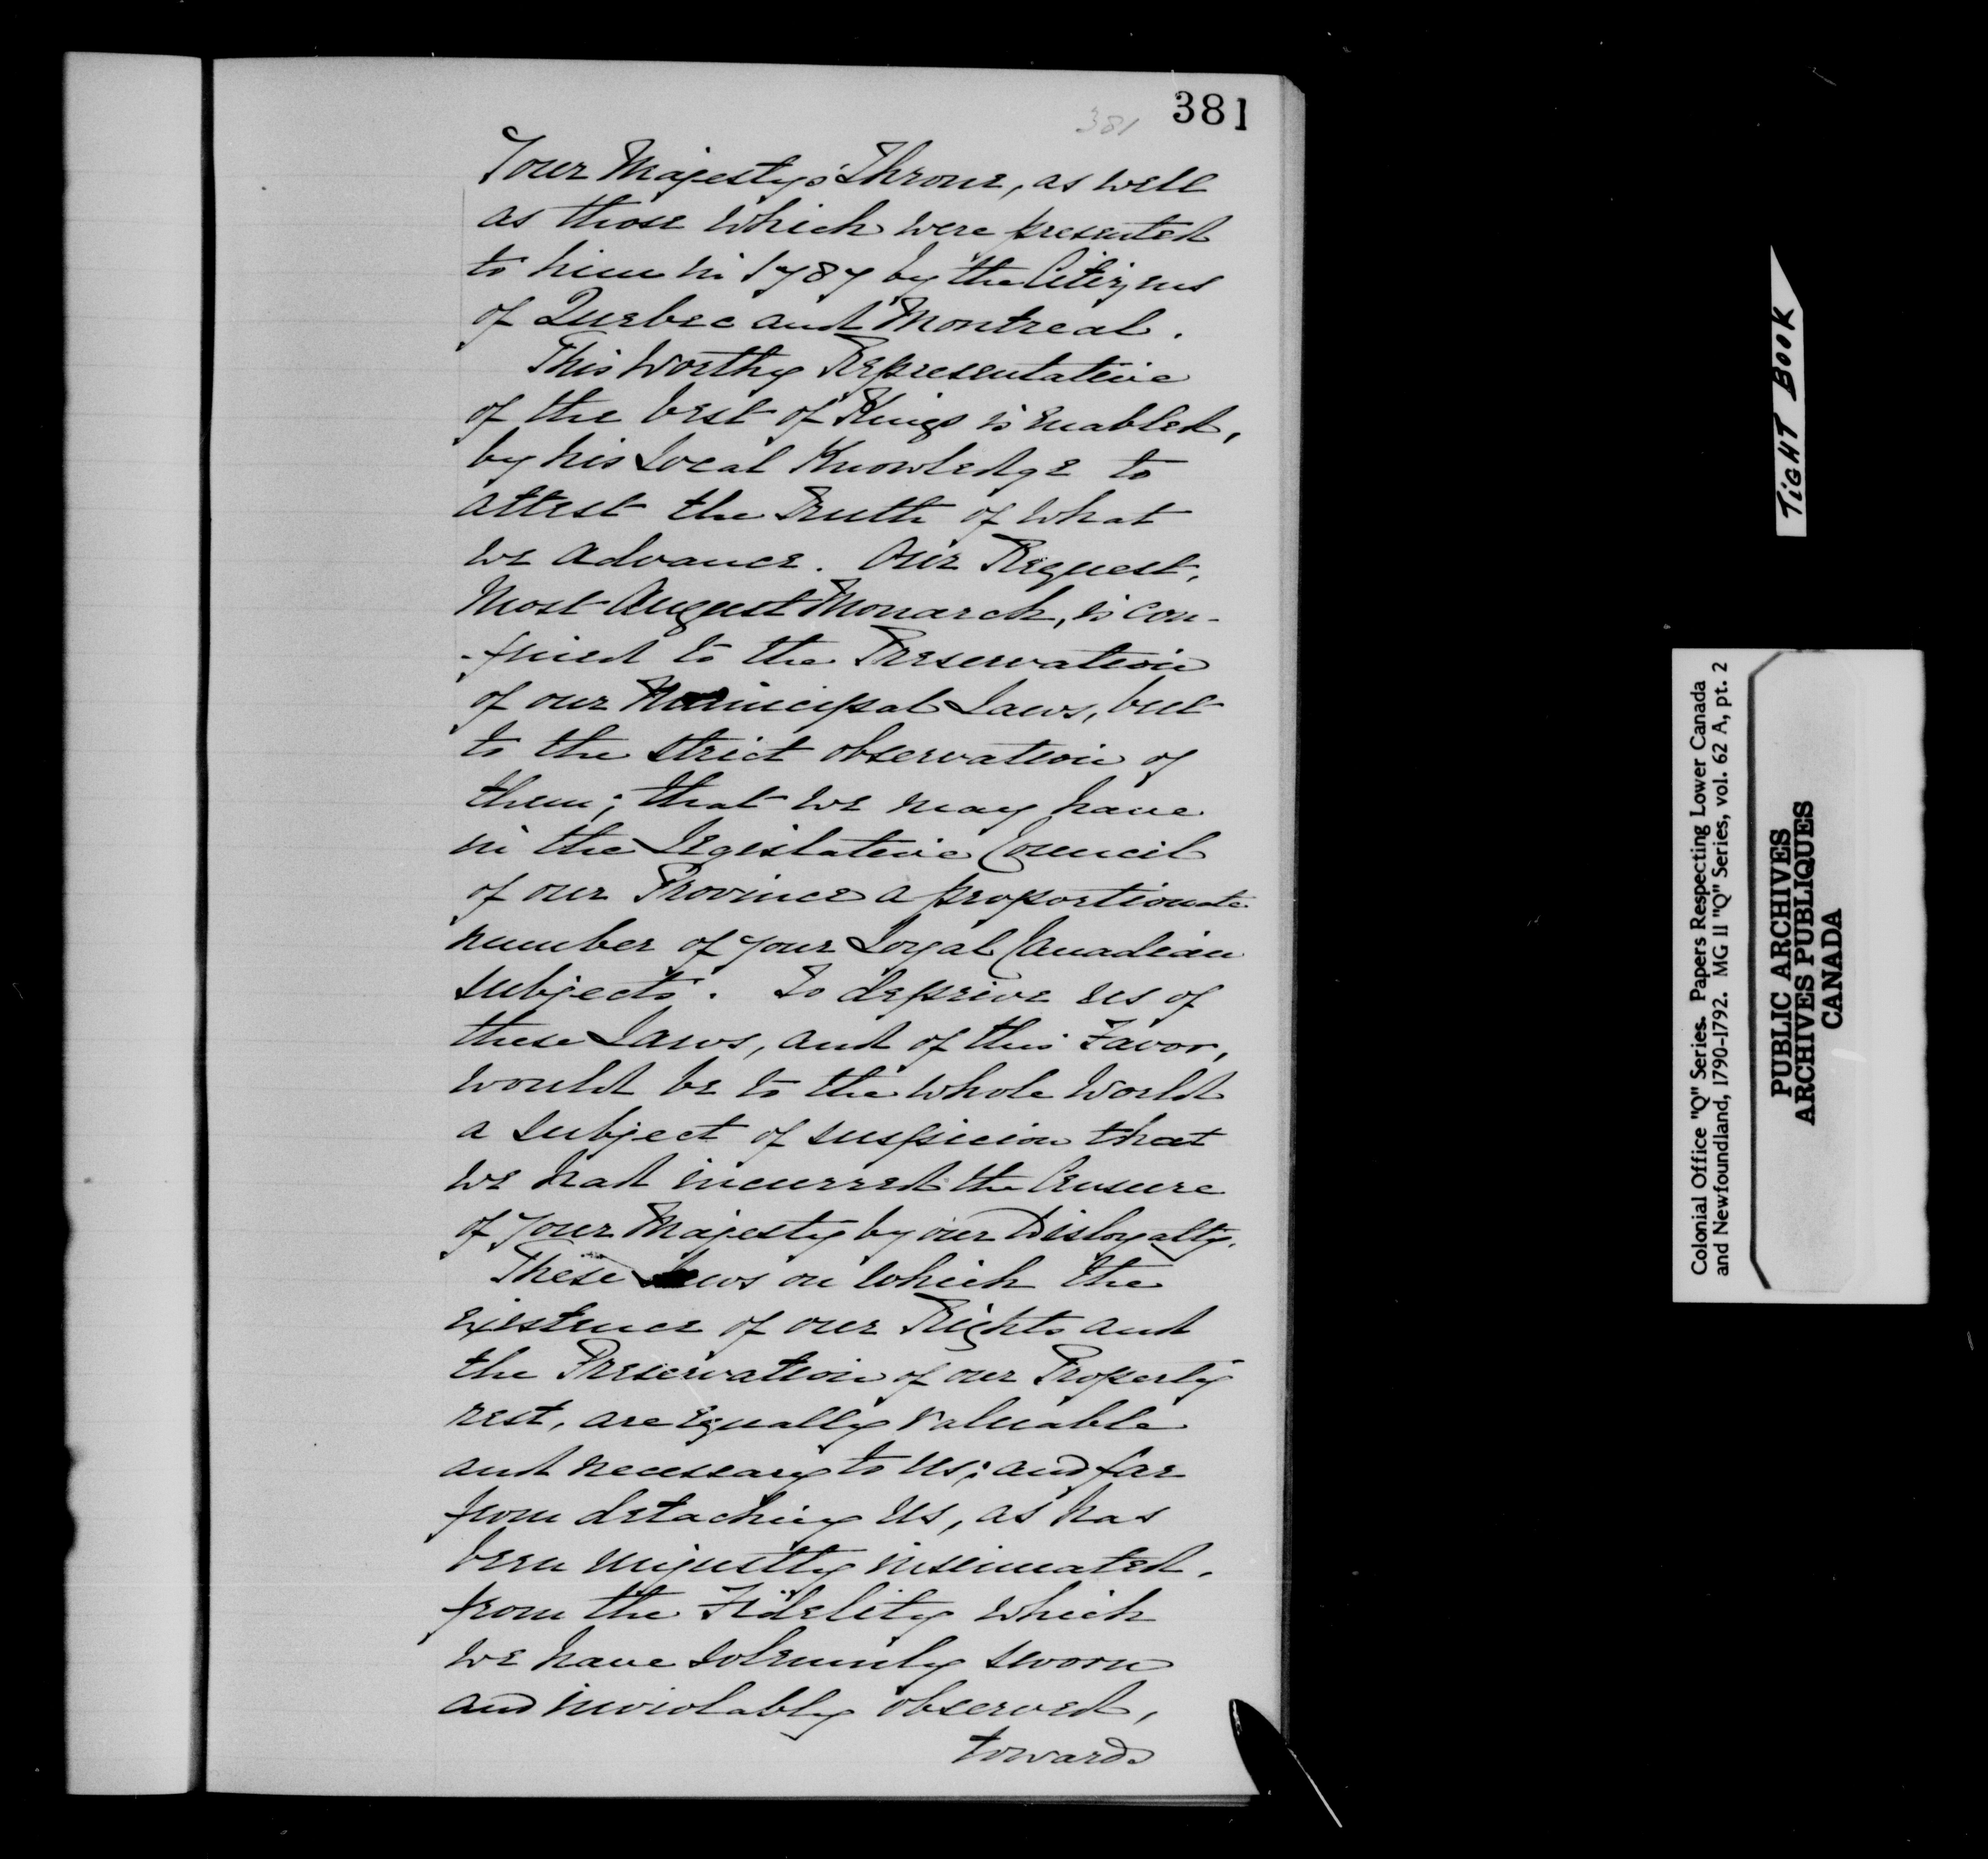 381
381
Your Majesty's Throne, as well
as those which were presented
to him in 1787 by the Citizens
of Quebec and Montreal.
This Worthy Representative
of the best of Kings is enabled,
by his Local Knowledge to
attest the Truth of what
we advance. Our Request,
Most August Monarch, is con-
-fined to the Preservation
of our Municipal Laws, but
to the strict observation of
them; that we may have
in the Legislative Council
of our Province a proportionate
number of your Loyal Canadian
subjects. To deprive us of
these Laws, and of this Favor,
would be to the whole World
a subject of suspicion that
we had incurred the Censure
of your Majesty by our Disloyalty.
These Laws on which the
existence of our Rights and
the Preservation of our Property
rest, are equally valuable
and necessary to us; and far
from detaching us, as has
been unjustly insinuated,
from the Fidelity which
we have solemnly sworn
and inviolably observed,
towards
TIGHT BOOK
Colonial Office "Q" Series. Papers Respecting Lower Canada
and Newfoundland, 1790-1792. MG 11 "Q" Series, vol. 62 A, pt. 2
PUBLIC ARCHIVES
ARCHIVES PUBLIQUES
CANADA